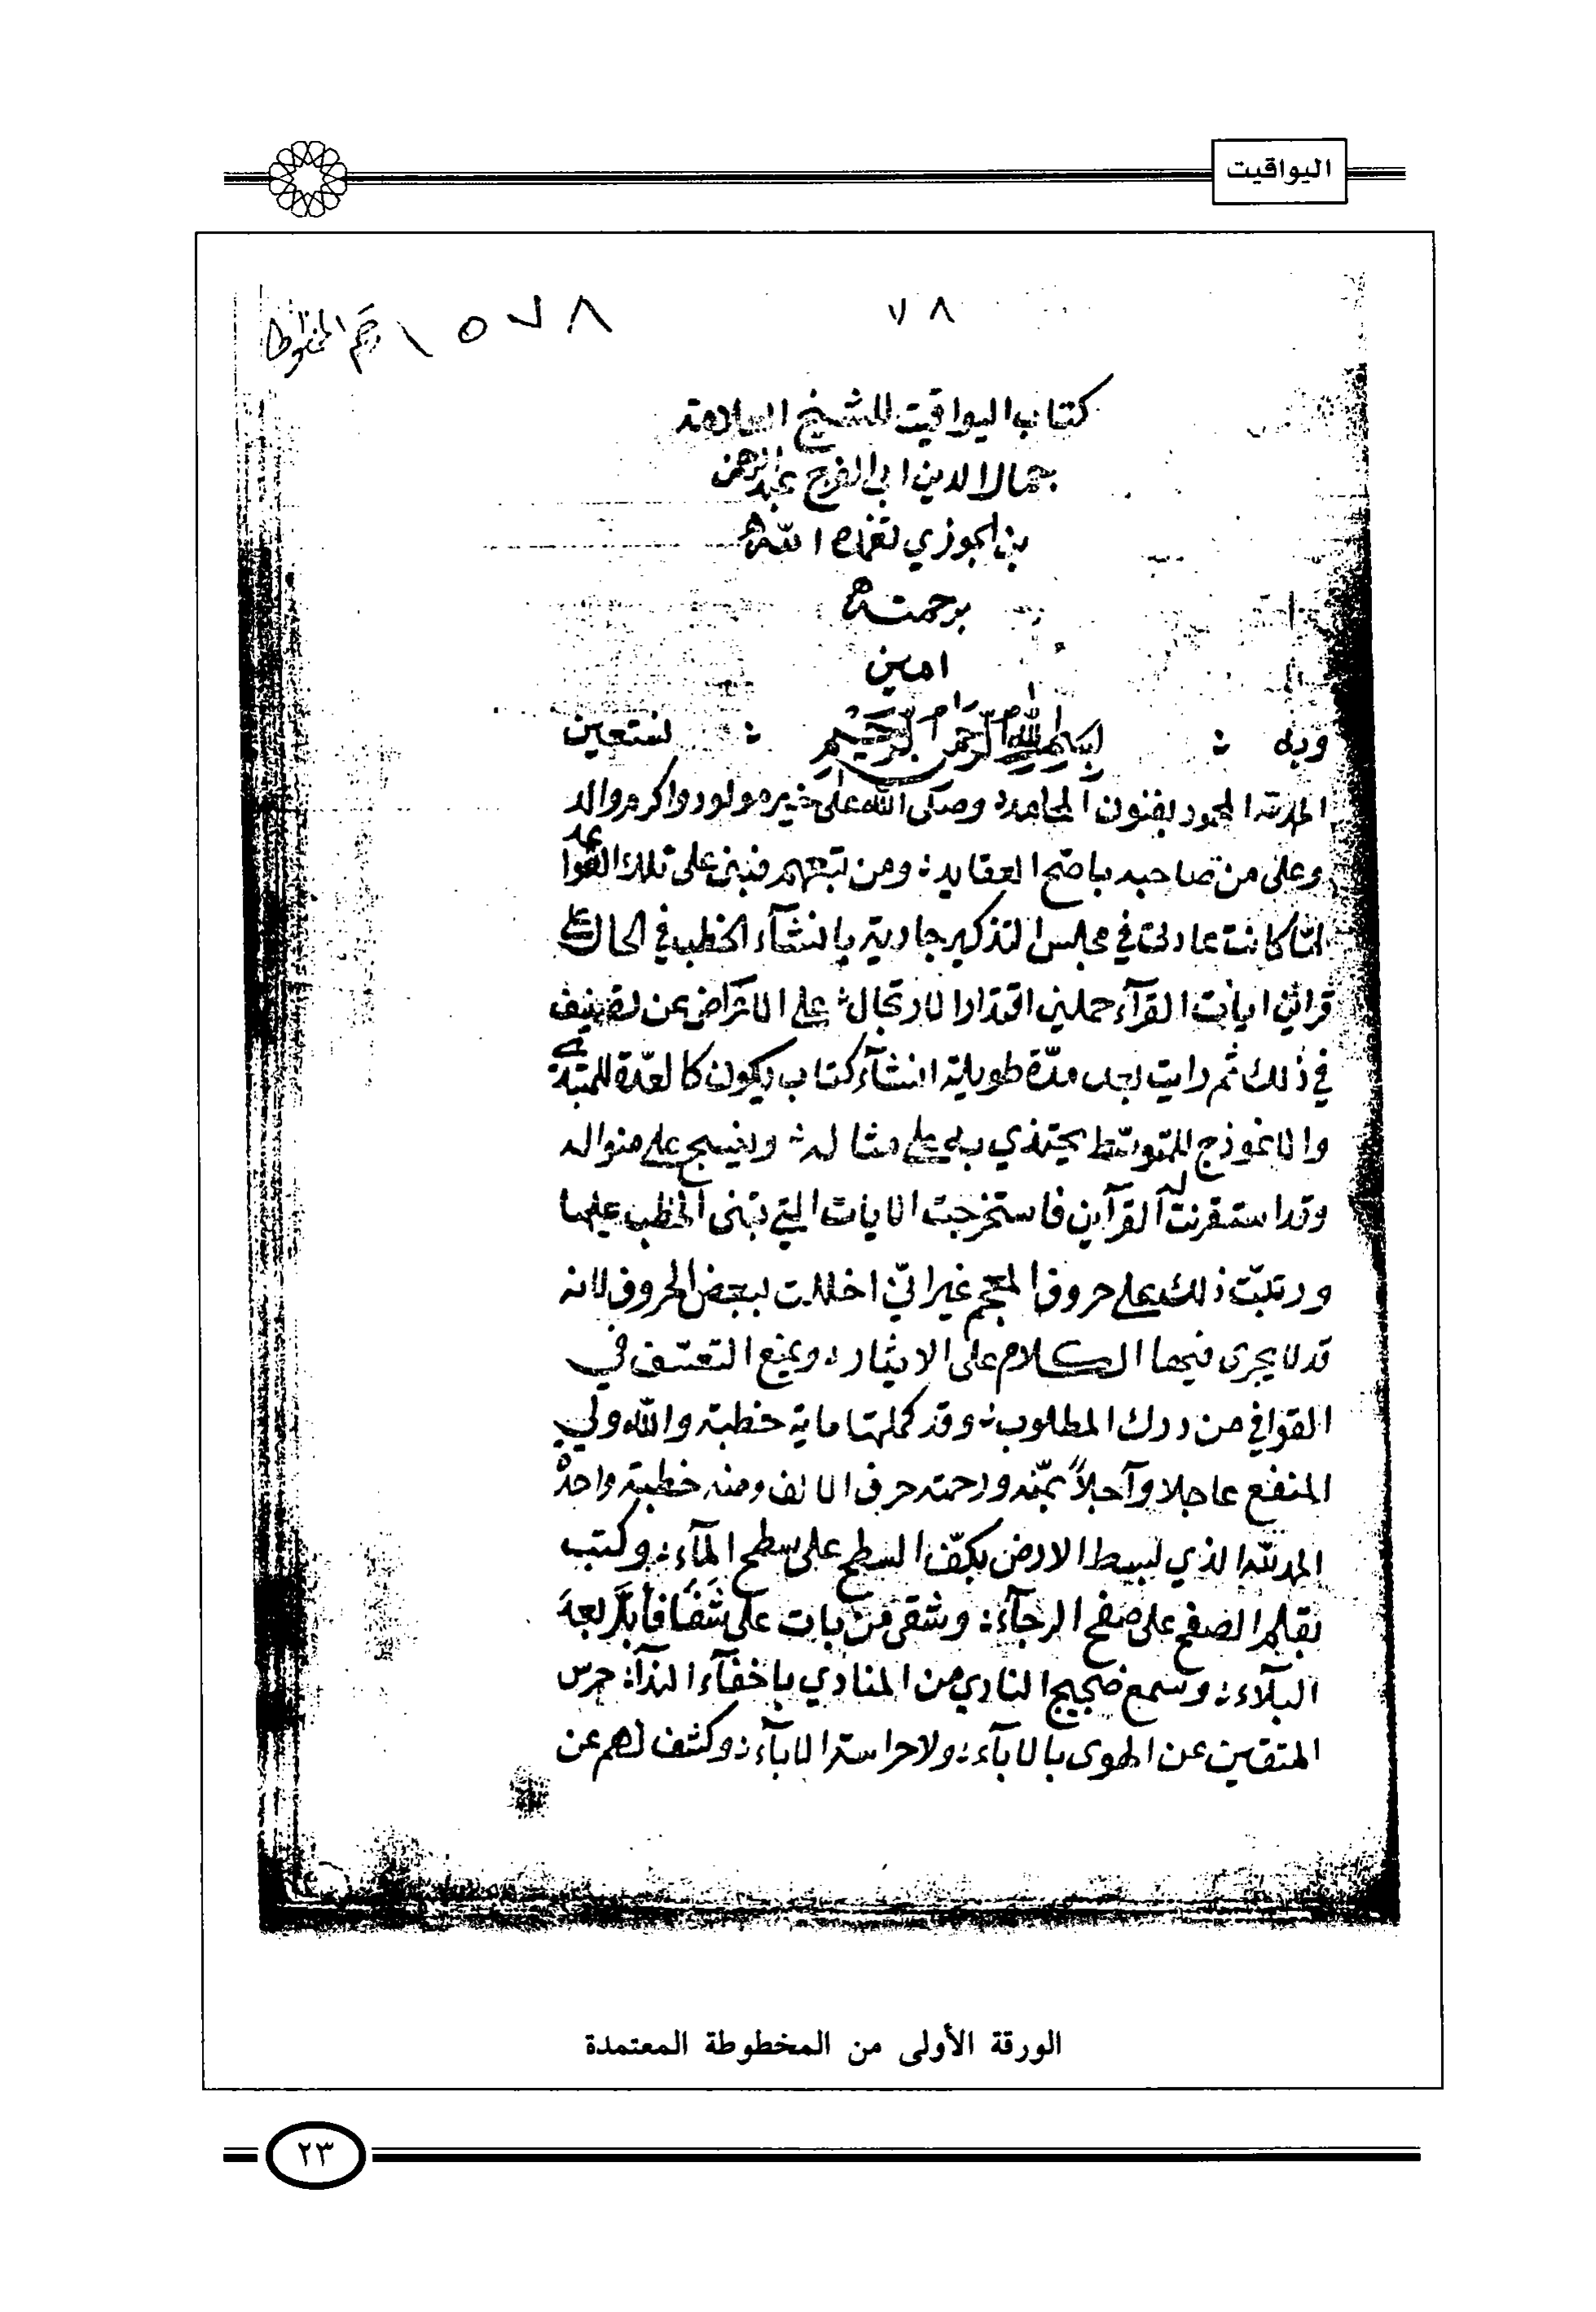 اليواقيت
٧٨
رقم المخطوط ١٥٧٨
كتاب اليواقيت للشيخ العلامة
جمال الدين ابي الفرج عبد الرحمن
بن الجوزي تغمده الله
برحمته
امين
وبه بسم الله الرحمن الرحيم نستعين
الحمد لله المحمود بفنون المحامد وصلى الله على خير مولود واكرم والد
وعلى من صاحبه باصح العقايد ومن تبعهم فبنى على تلك القواعد
لما كانت عادتي في مجلس التذكير جارية بانشآء الخطب في الحال على
قرائن ايات القرآء حملني اقتدار الارتجال على الاعراض عن تصنيف
في ذلك ثم رايت بعد مدّة طويلة انشآء كتاب يكون كالعدّة للمبتدي
والانموذج للمتوسّط يحتذي به على مثاله وينسج على منواله
وقد استقريت له القرآن فاستخرجت الايات التي تبنى الخطب عليها
ورتبّت ذلك على حروف المعجم غير انّي اخللت ببعض الحروف لانه
قد لا يجرى فيها الكلام على الايثار ويمنع التعسّف في
القوافي من درك المطلوب وقد كملتها ماية خطبة والله ولي
المنفع عاجلا وآجلاً بمنّه ورحمته حرف الالف ومنه خطبة واحدة
الحمد لله الذي بسط الارض بكفّ السطح على سطح المآء وكتب
بقلم الصفح على صفح الرجآء وشفى من بات على شفا
البلاء وسمع ضجيج النادي من المنادي باخفآء الندآ حرس
المتقين عن الهوى بالابآء ولا حراسة الابآء وكشف لهم عن
الورقة الأولى من المخطوطة المعتمدة
٢٣